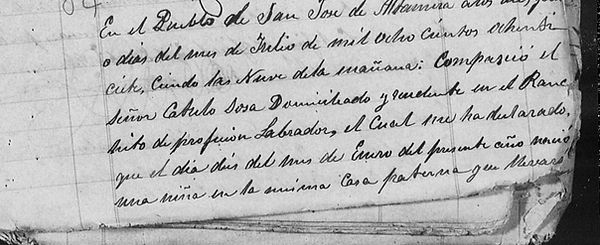 En el Pueblo de San Jose de Altamira a los
o días del mes de Julio de mil ocho cientos ochenti
ciete, ciendo las Nueve dela mañana: Comparició el
señor Catulo Sosa Domiciliado y recidente en el Ranc
hito de proficion Labrador, el Cual me ha declarado,
que el día diés del mes de Enero del presente año nació
una niña en la misma Casa paterna que llevará